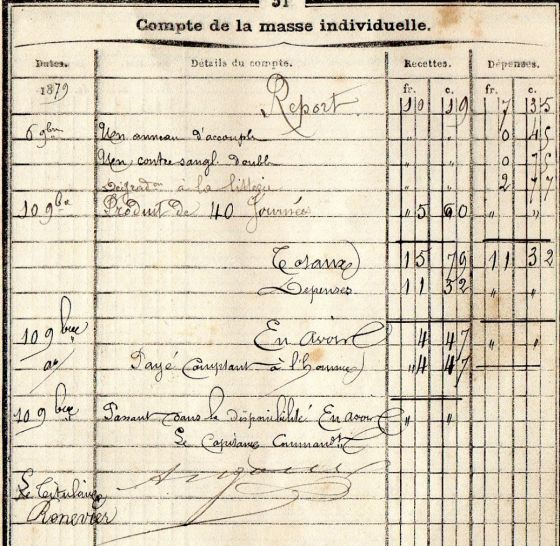 51
Compte de la masse individuelle.
Dates. Détails du compte. Recettes. Dépenses.
1879 fr. c. fr. c.
Report 10 19 7 35
6 9bre Un anneau d'accouple " " 0 45
Un contre sangl. double " " 0 75
Dégradon à la literie " " 2 77
10 9bre Produit de 40 Journées " 5 60 " "
Totaux 15 79 11 32
Dépenses 11 32 " "
10 9bre En avoir 4 47 " "
Payé Comptant à l'homme " 4 47
10 9bre Passant dans la disponibilité En avoir " "
Le Capitaine Commandt
Le Titulaire
Ronevier